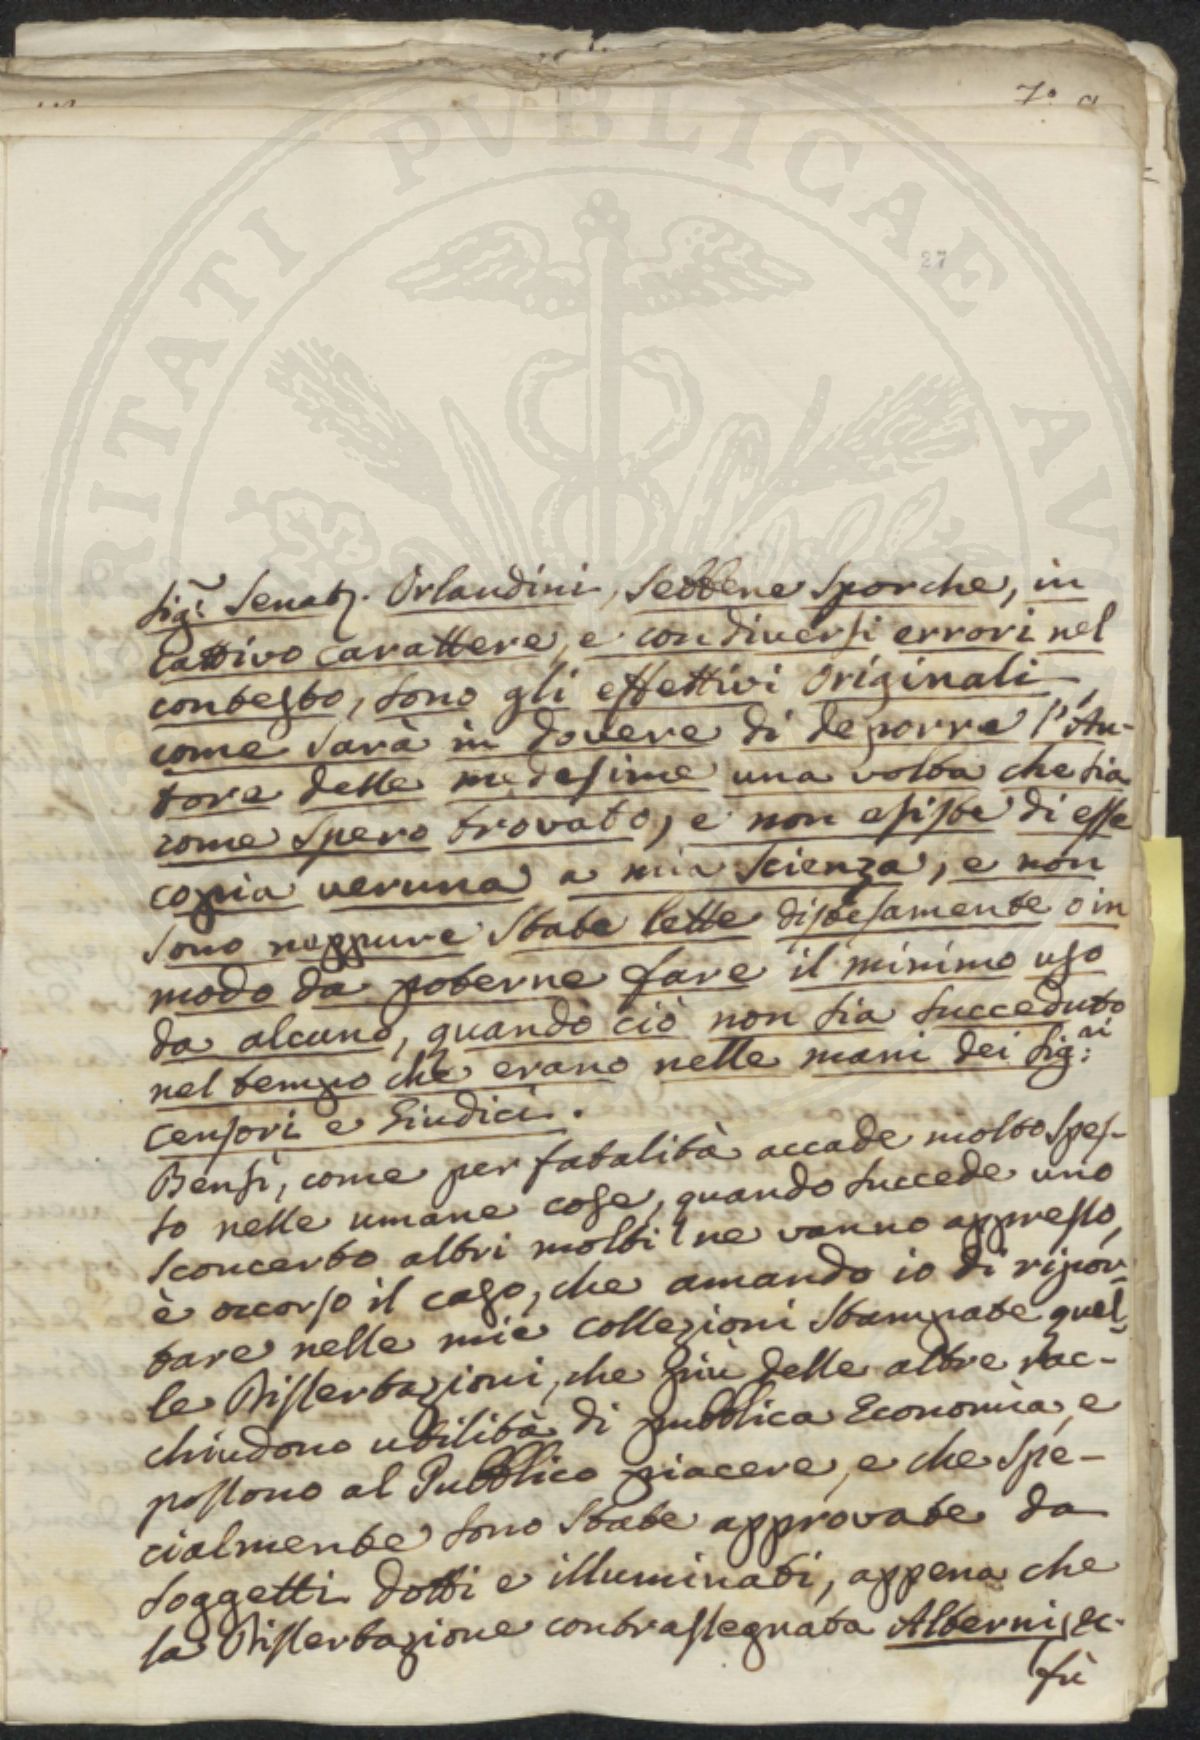 7° a
PRITATI PVBLICAE AVG
27
Sig.r Senat.r Orlandini, sebbene sporche, in
cattivo carattere, e con diversi errori nel
contesto, sono gli effettivi originali,
come sarà in dovere di deporre l'Au-
tore delle medesime una volta che sia
come spero trovato, e non esiste di esse
copia veruna a mia scienza, e non
sono neppure state lette distesamente o in
modo da poterne fare il minimo uso
da alcuno, quando ciò non sia succeduto
nel tempo che erano nelle mani dei Sig:ri
Censori e Giudici.
Bensì, come per fatalità accade molto spes-
so nelle umane cose, quando succede uno
sconcerto altri molti ne vanno appresso,
è occorso il caso, che amando io di ripor-
tare nelle mie collezioni stampate quel-
le Dissertazioni, che più delle altre rac-
chiudono utilità di pubblica Economia, e
possono al Pubblico piacere, e che spe-
cialmente sono state approvate da
soggetti dotti e illuminati, appena che
la Dissertazione contrassegnata Alterni, ec.
fù